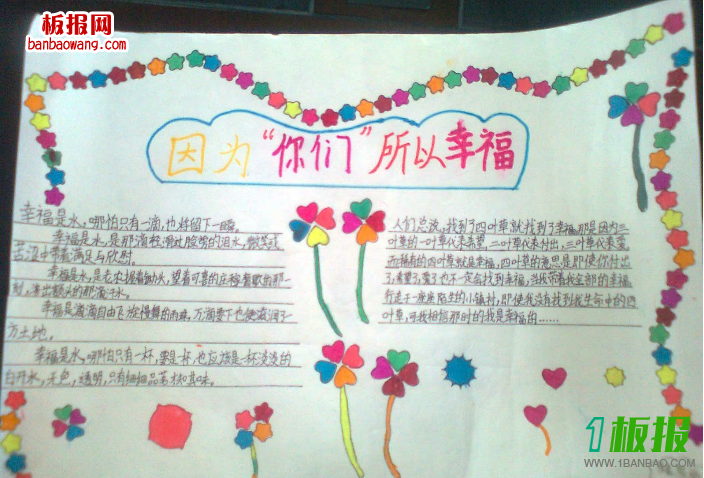 板报网
banbaowang.com
因为“你们”所以幸福
幸福是水，哪怕只有一滴，也将留下一瞬。
幸福是水，是那滴轻滑过脸颊的泪水，微笑或
苦涩中带着满足与欣慰。
幸福是水，是老农握着锄头，望着可喜的庄稼
刻，渗出额头的那滴汗水。
幸福是滴滴自由飞旋慢舞的雨珠，万滴落下也便滋润了一
方土地。
幸福是水，哪怕只有一杯，要是一杯，也应该是一杯淡淡的
白开水，无色，透明，只有细细品茗才知其味。
人们总说，找到了四叶草就找到了幸福，那是因为三
叶草的一叶草代表希望，二叶草代表付出，三叶草代表爱，
而稀有的四叶草就是幸福，四叶草的意思是即使你付出
了，希望了，爱了也不一定会找到幸福，当我带着我全部的幸福，
行走于一座座陌生的小镇村，即使我没有找到我生命中的四
叶草，可我相信那时的我是幸福的……
1板报
WWW.1BANBAO.COM